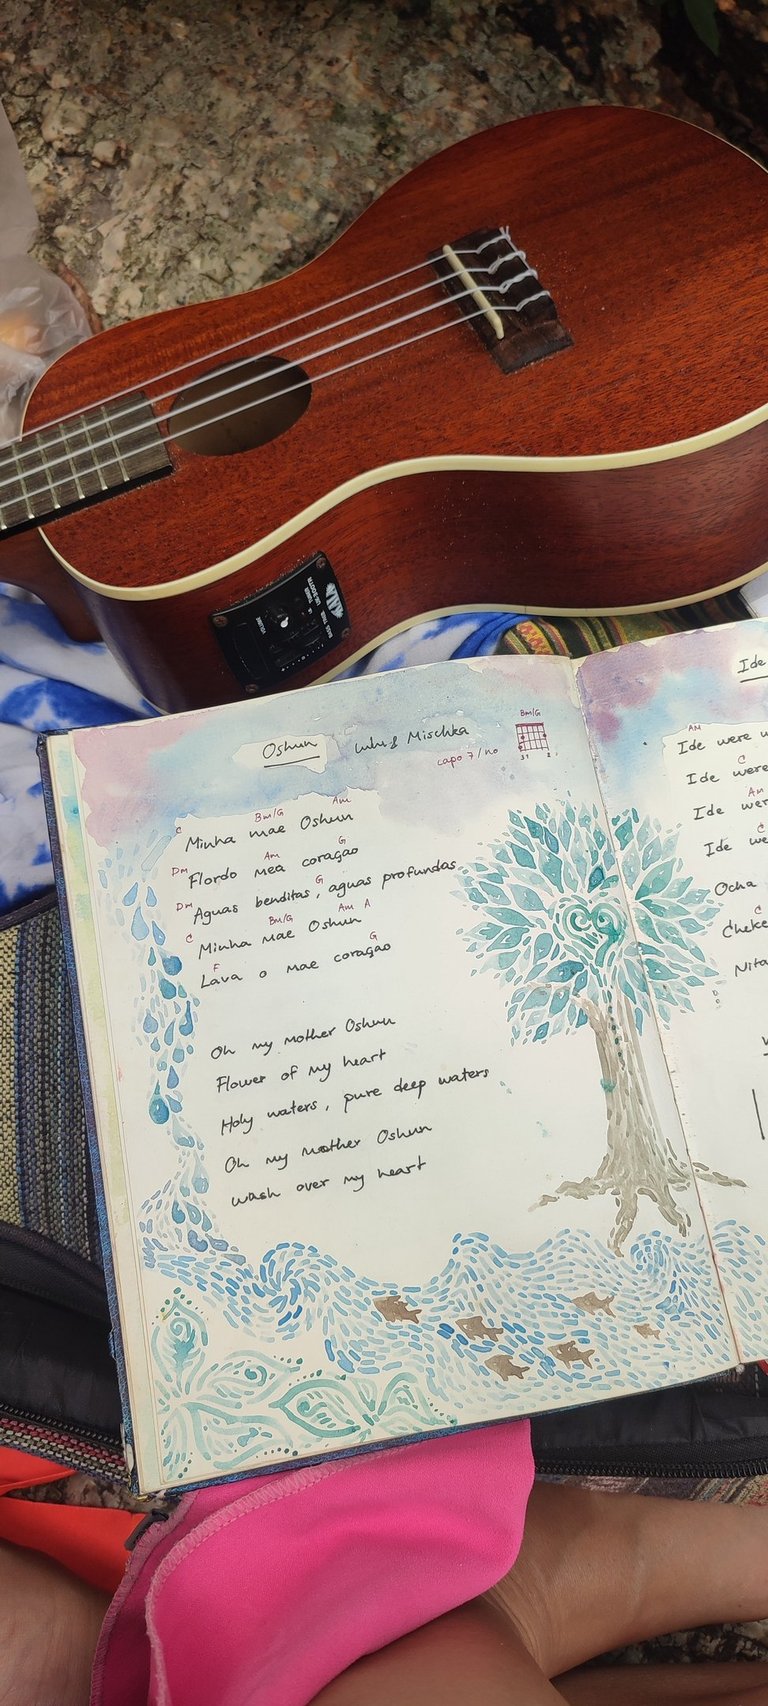 Oshun
Lulu & Mischka
capo 7/no
Bm/G
31 2
C Bm/G Am
Minha mae Oshun
Dm Am G
Flordo mea coraçao
Dm G
Aguas benditas, aguas profundas
C Bm/G Am A
Minha mae Oshun
F G
Lava o mae coraçao
Oh my mother Oshun
Flower of my heart
Holy waters, pure deep waters
Oh my mother Oshun
wash over my heart
Ide
Am
Ide were w
C
Ide were
Am
Ide wer
C
Ide we
Ocha
C
Cheke
Nita
VOLUME
BASS